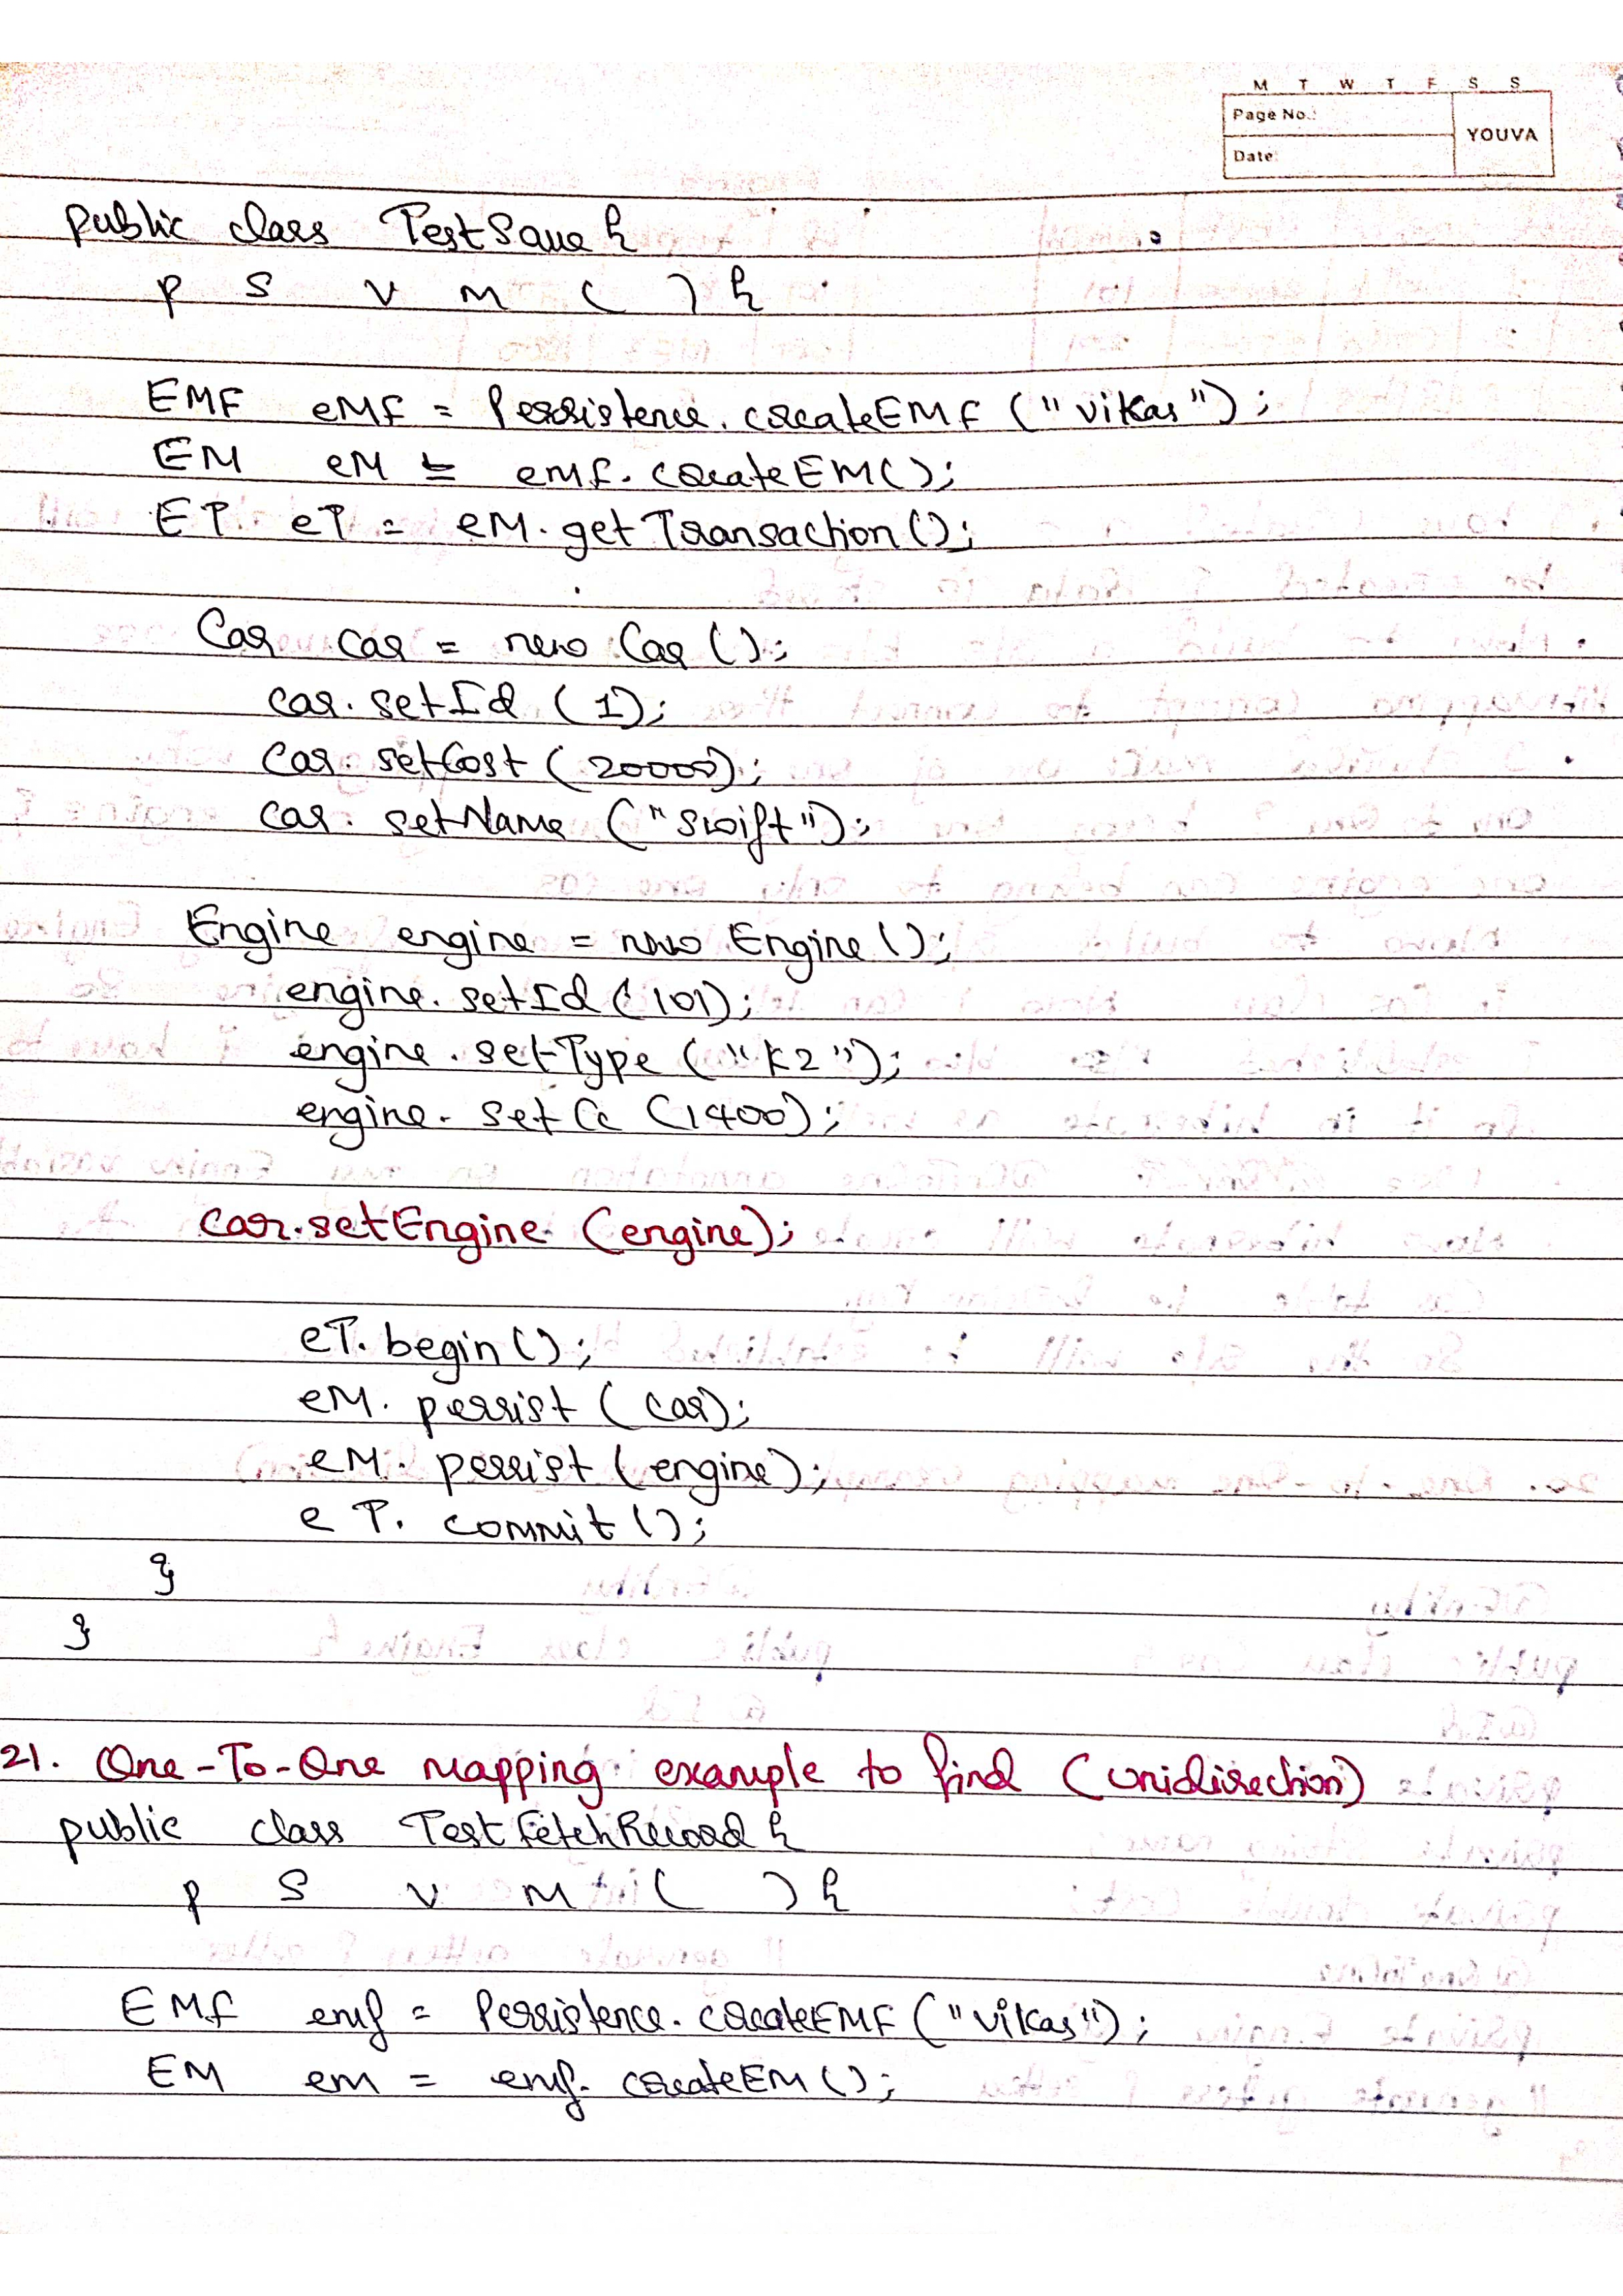 M T W T F S S
Page No.:
YOUVA
Date:
public class TestSave {
p s v m ( ) {
EMF eMF = Persistence.createEMF ("vikas");
EM eM = emf.createEM();
ET eT = eM.getTransaction();
Car car = new Car ();
car.setId (1);
car.setCost (20000);
car.setName ("swift");
Engine engine = new Engine ();
engine.setId (101);
engine.setType ("K2");
engine.setCc (1400);
car.setEngine (engine);
eT.begin();
eM.persist (car);
eM.persist (engine);
eT.commit();
}
}
21. One-To-One mapping example to find (unidirection)
public class TestFetchRecord {
p s v m ( ) {
EMF emf = Persistence.createEMF ("vikas");
EM em = emf.createEM();